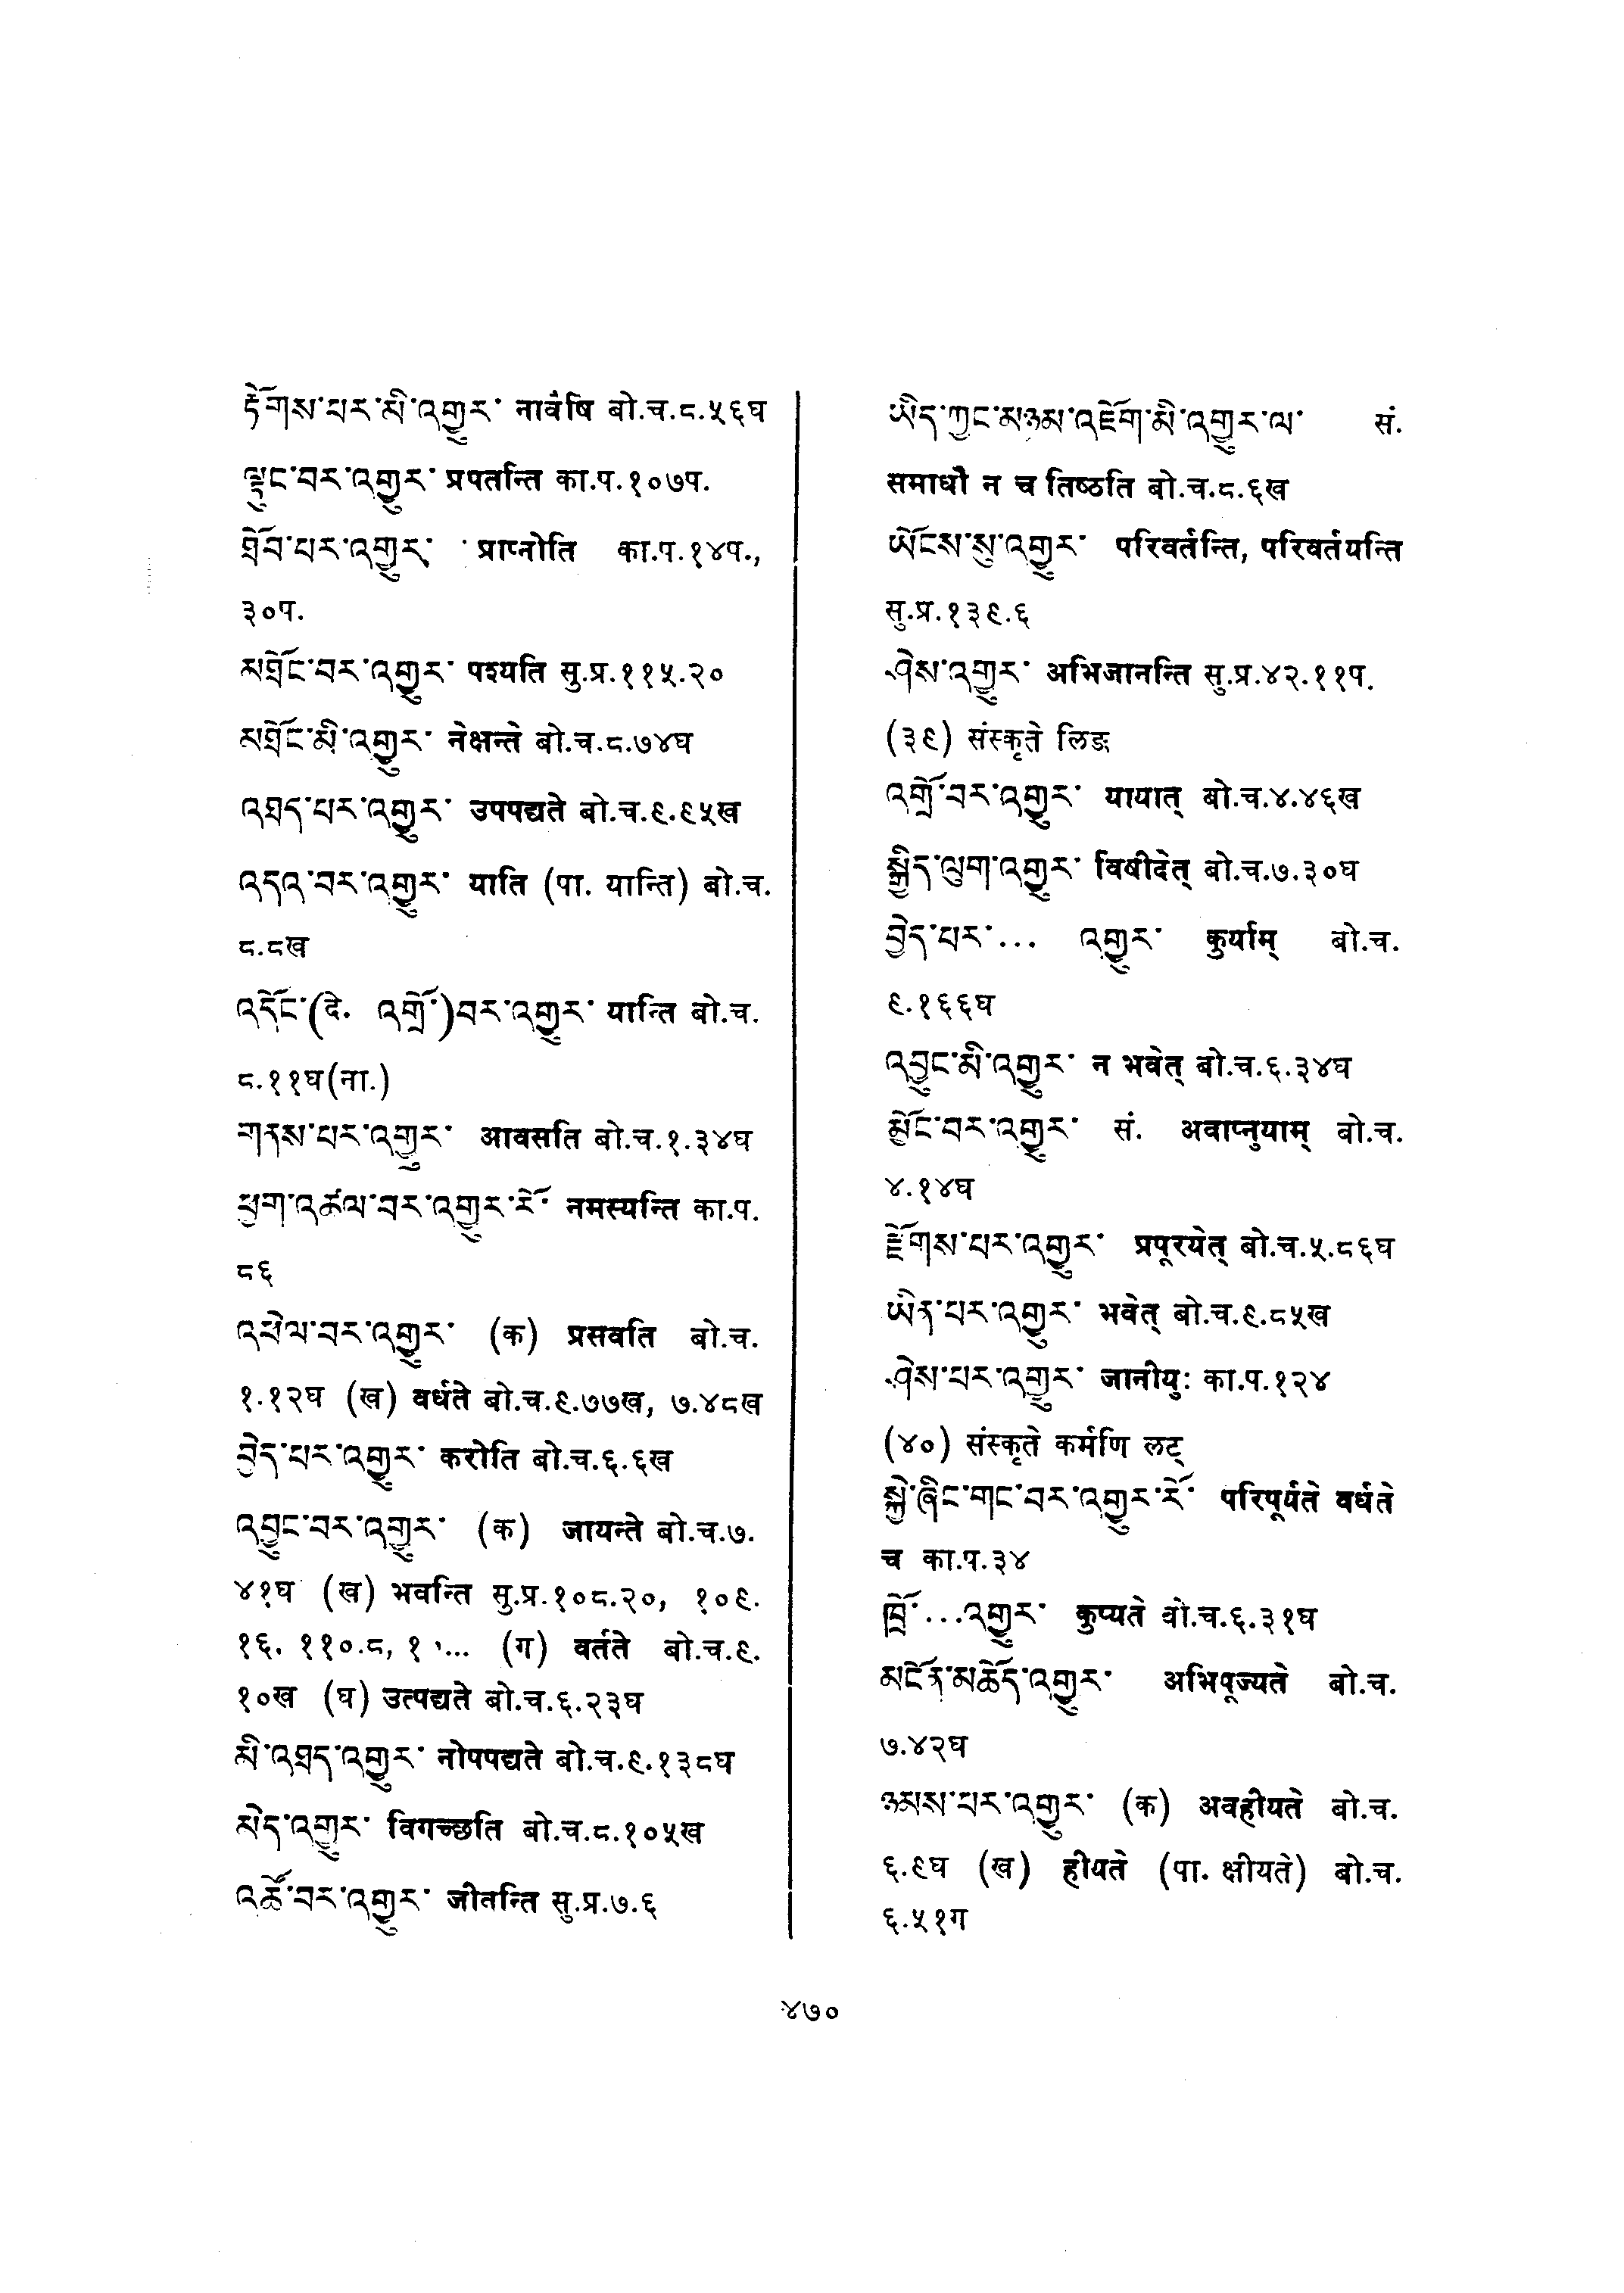 རྟོགས་པར་མི་འགྱུར་ नावैषि बो.च.८.५६घ
ལྟུང་བར་འགྱུར་ प्रपतन्ति का.प.१०७प.
ཐོབ་པར་འགྱུར་ प्राप्नोति का.प.१४प.,
३०प.
མཐོང་བར་འགྱུར་ पश्यति सु.प्र.११५.२०
མཐོང་མི་འགྱུར་ नेक्षन्ते बो.च.८.७४घ
འཐད་པར་འགྱུར་ उपपद्यते बो.च.९.९५ख
འདའ་བར་འགྱུར་ याति (पा. यान्ति) बो.च.
८.८ख
འདོང་(दे. འགྲོ་)བར་འགྱུར་ यान्ति बो.च.
८.११घ(ना.)
གནས་པར་འགྱུར་ आवसति बो.च.१.३४घ
ཕྱག་འཚལ་བར་འགྱུར་རོ་ नमस्यन्ति का.प.
८६
འཕེལ་བར་འགྱུར་ (क) प्रसवति बो.च.
१.१२घ (ख) वर्धते बो.च.९.७७ख, ७.४८ख
བྱེད་པར་འགྱུར་ करोति बो.च.६.६ख
འབྱུང་བར་འགྱུར་ (क) जायन्ते बो.च.७.
४१घ (ख) भवन्ति सु.प्र.१०८.२०, १०९.
१६. ११०.८, १ ... (ग) वर्तते बो.च.९.
१०ख (घ) उत्पद्यते बो.च.६.२३घ
མི་འཐད་འགྱུར་ नोपपद्यते बो.च.९.१३८घ
མེད་འགྱུར་ विगच्छति बो.च.८.१०५ख
འཚོ་བར་འགྱུར་ जीतन्ति सु.प्र.७.६
ཡིད་ཀྱང་མཉམ་འཇོག་མི་འགྱུར་ལ་ सं.
समाधौ न च तिष्ठति बो.च.८.६ख
ཡོངས་སུ་འགྱུར་ परिवर्तन्ति, परिवर्तयन्ति
सु.प्र.१३९.६
ཤེས་འགྱུར་ अभिजानन्ति सु.प्र.४२.११प.
(३९) संस्कृते लिङ्ग
འགྲོ་བར་འགྱུར་ यायात् बो.च.४.४६ख
སྒྱིད་ལུག་འགྱུར་ विषीदेत् बो.च.७.३०घ
བྱེད་པར་... འགྱུར་ कुर्याम् बो.च.
९.१६६घ
འབྱུང་མི་འགྱུར་ न भवेत् बो.च.६.३४घ
མྱོང་བར་འགྱུར་ सं. अवाप्नुयाम् बो.च.
४.१४घ
རྫོགས་པར་འགྱུར་ प्रपूरयेत् बो.च.५.८६घ
ཡིན་པར་འགྱུར་ भवेत् बो.च.९.८५ख
ཤེས་པར་འགྱུར་ जानीयुः का.प.१२४
(४०) संस्कृते कर्मणि लट्
སྐྱེ་ཞིང་གང་བར་འགྱུར་རོ་ परिपूर्यते वर्धते
च का.प.३४
ཁྲོ་...འགྱུར་ कुप्यते बो.च.६.३१घ
མངོན་མཆོད་འགྱུར་ अभिपूज्यते बो.च.
७.४२घ
ཉམས་པར་འགྱུར་ (क) अवहीयते बो.च.
६.९घ (ख) हीयते (पा. क्षीयते) बो.च.
६.५१ग
४७०